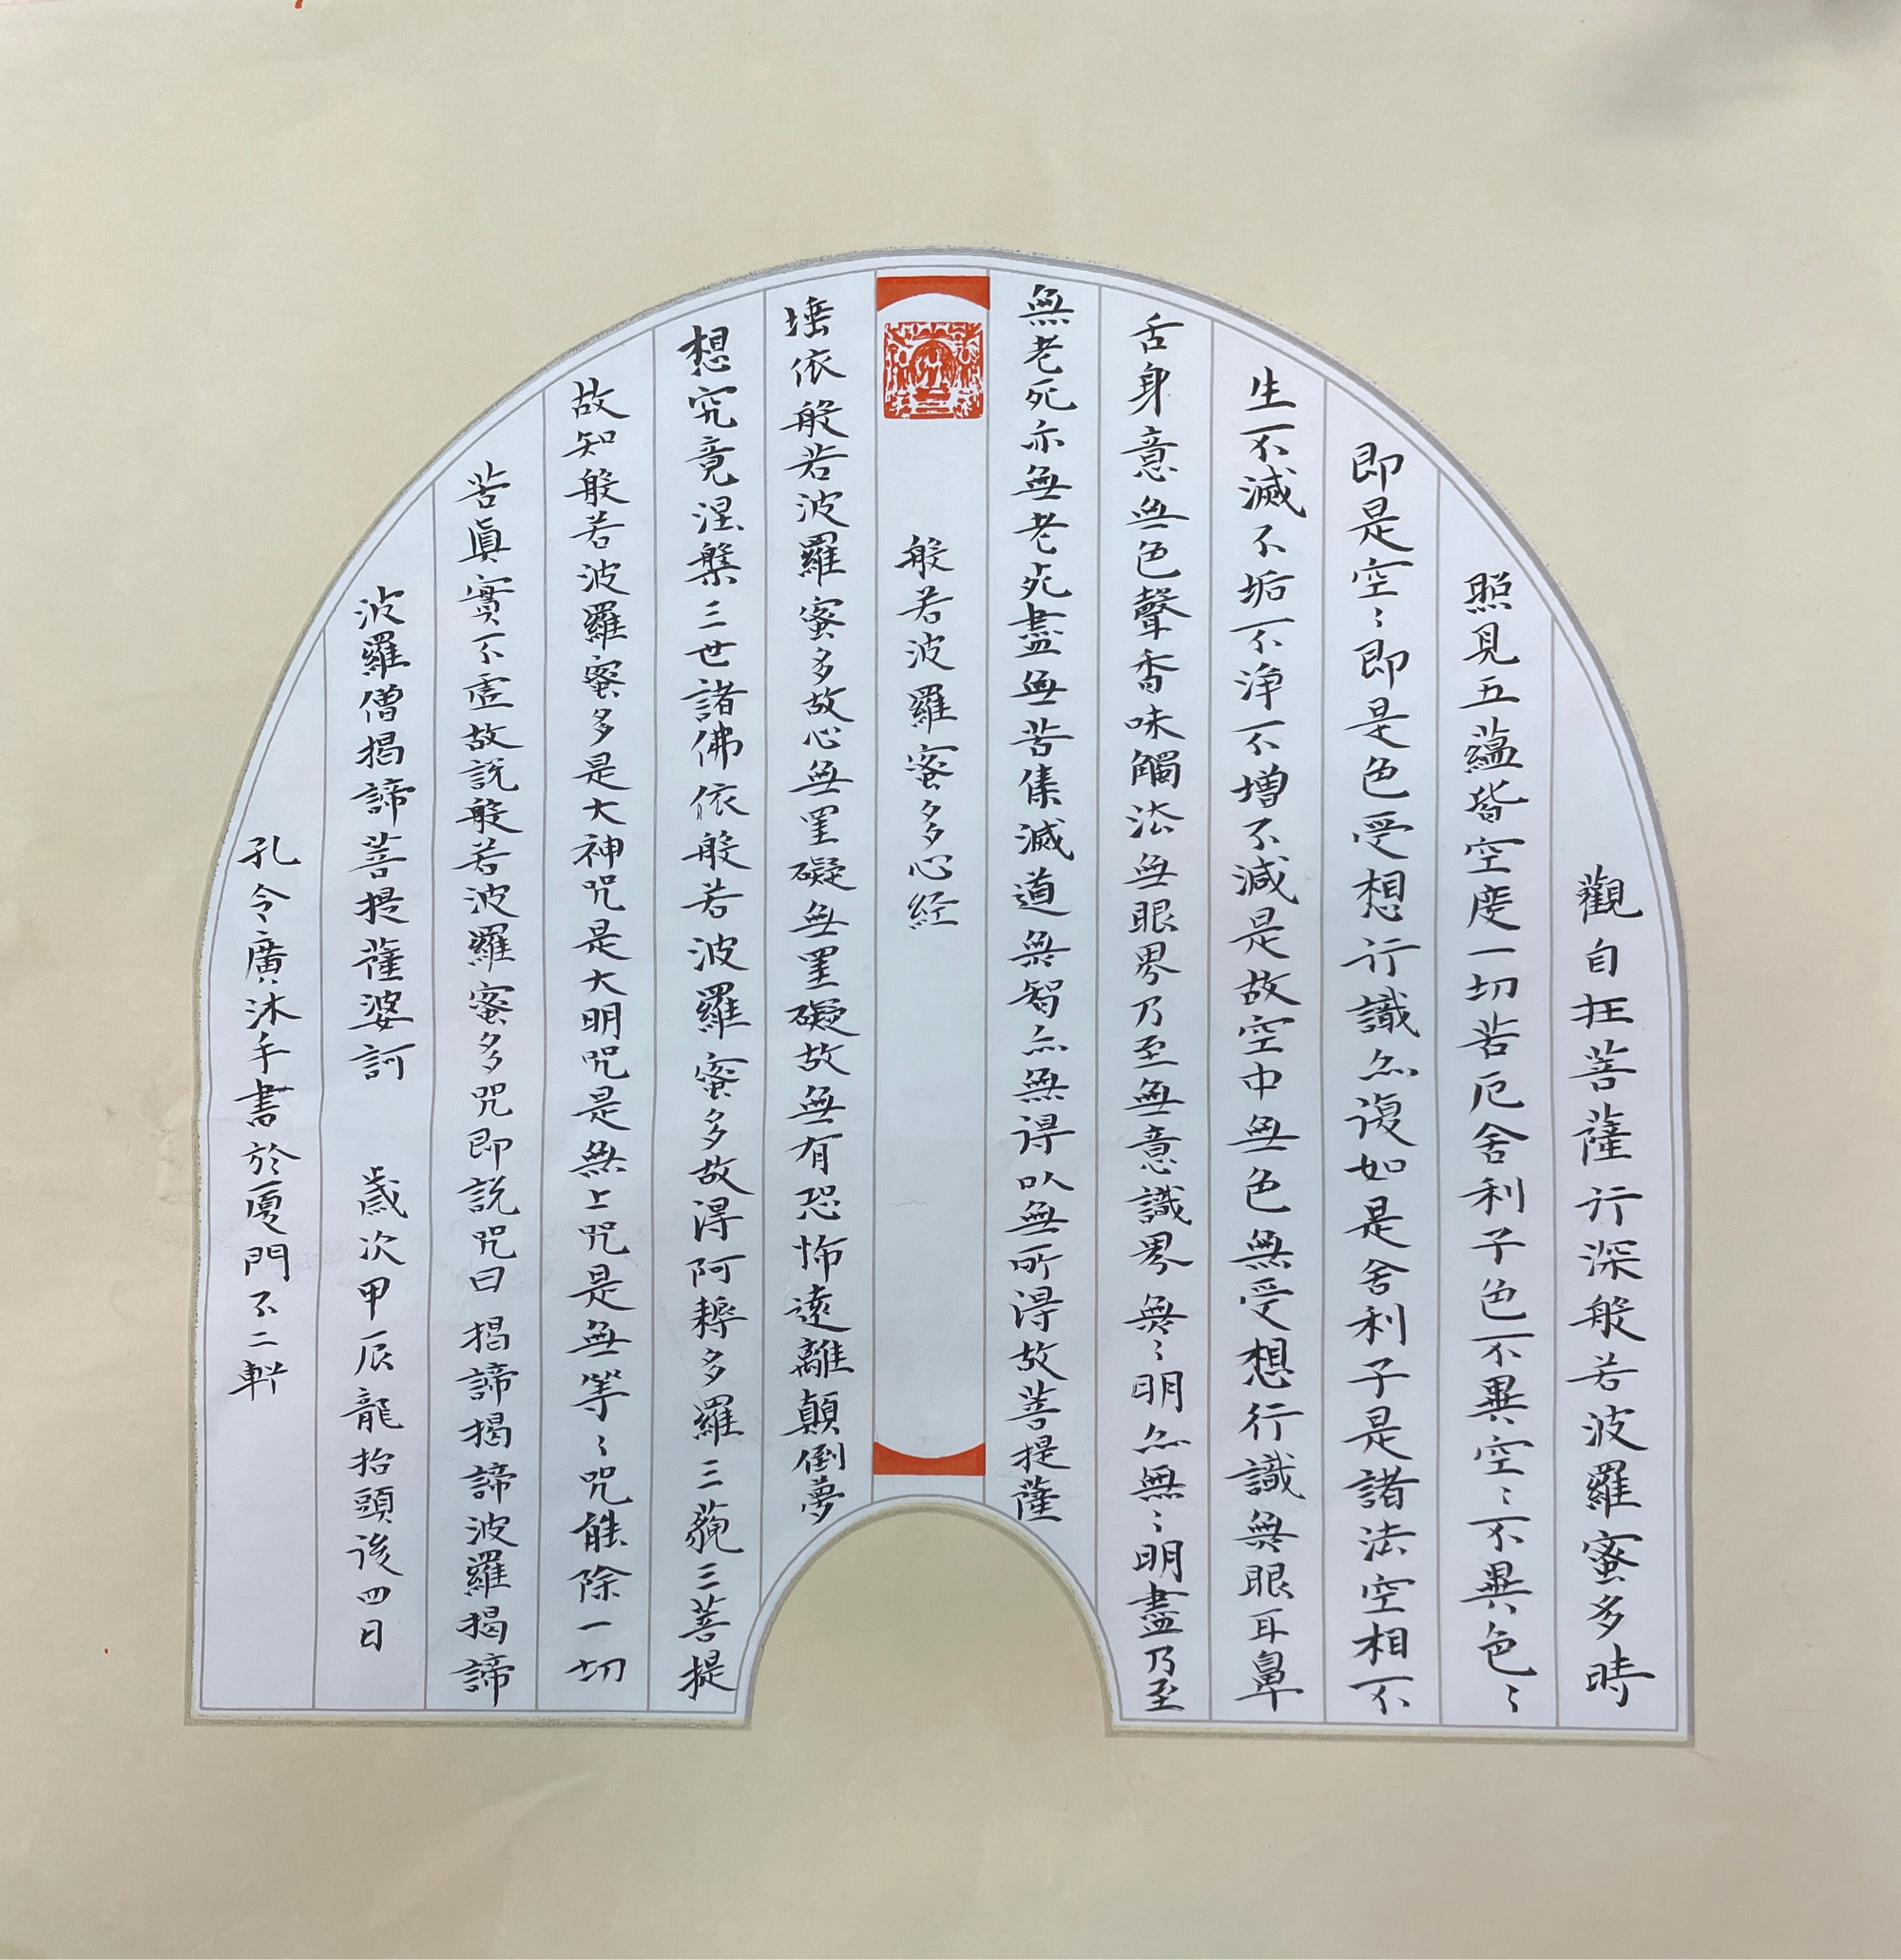 觀自在菩薩行深般若波羅蜜多時
照見五蘊皆空度一切苦厄舍利子色不異空〻不異色〻
即是空〻即是色受想行識亦復如是舍利子是諸法空相不
生不滅不垢不淨不增不減是故空中無色無受想行識無眼耳鼻
舌身意無色聲香味觸法無眼界乃至無意識界無〻明亦無〻明盡乃至
無老死亦無老死盡無苦集滅道無智亦無得以無所得故菩提薩
般若波羅蜜多心経
埵依般若波羅蜜多故心無罣礙無罣礙故無有恐怖遠離顛倒夢
想究竟涅槃三世諸佛依般若波羅蜜多故得阿耨多羅三藐三菩提
故知般若波羅蜜多是大神咒是大明咒是無上咒是無等〻咒能除一切
苦真實不虛故説般若波羅蜜多咒即説咒曰揭諦揭諦波羅揭諦
波羅僧揭諦菩提薩婆訶 歲次甲辰龍抬頭後四日
孔令廣沐手書於廈門不二軒